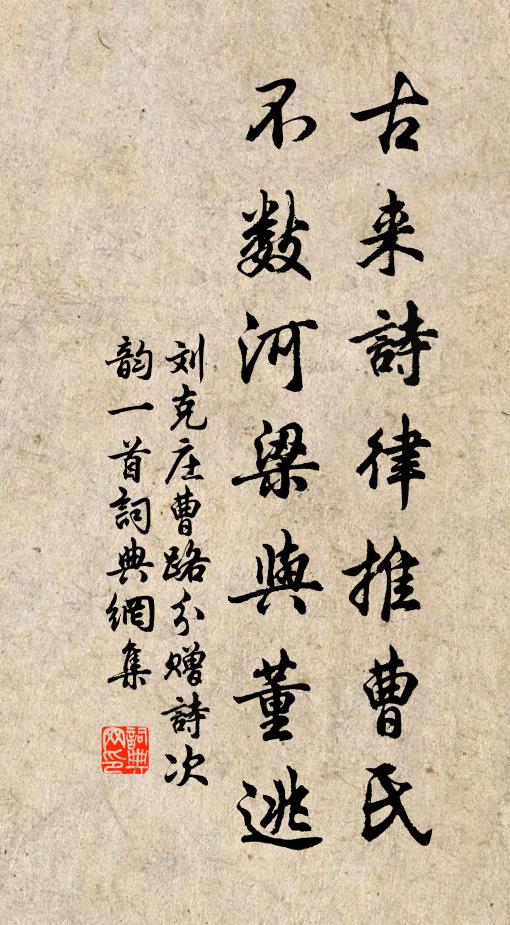 古来詩律推曹氏
不数河梁與董逃
刘克庄曹路分赠詩次
韵一首詞典網集
詞典
网印